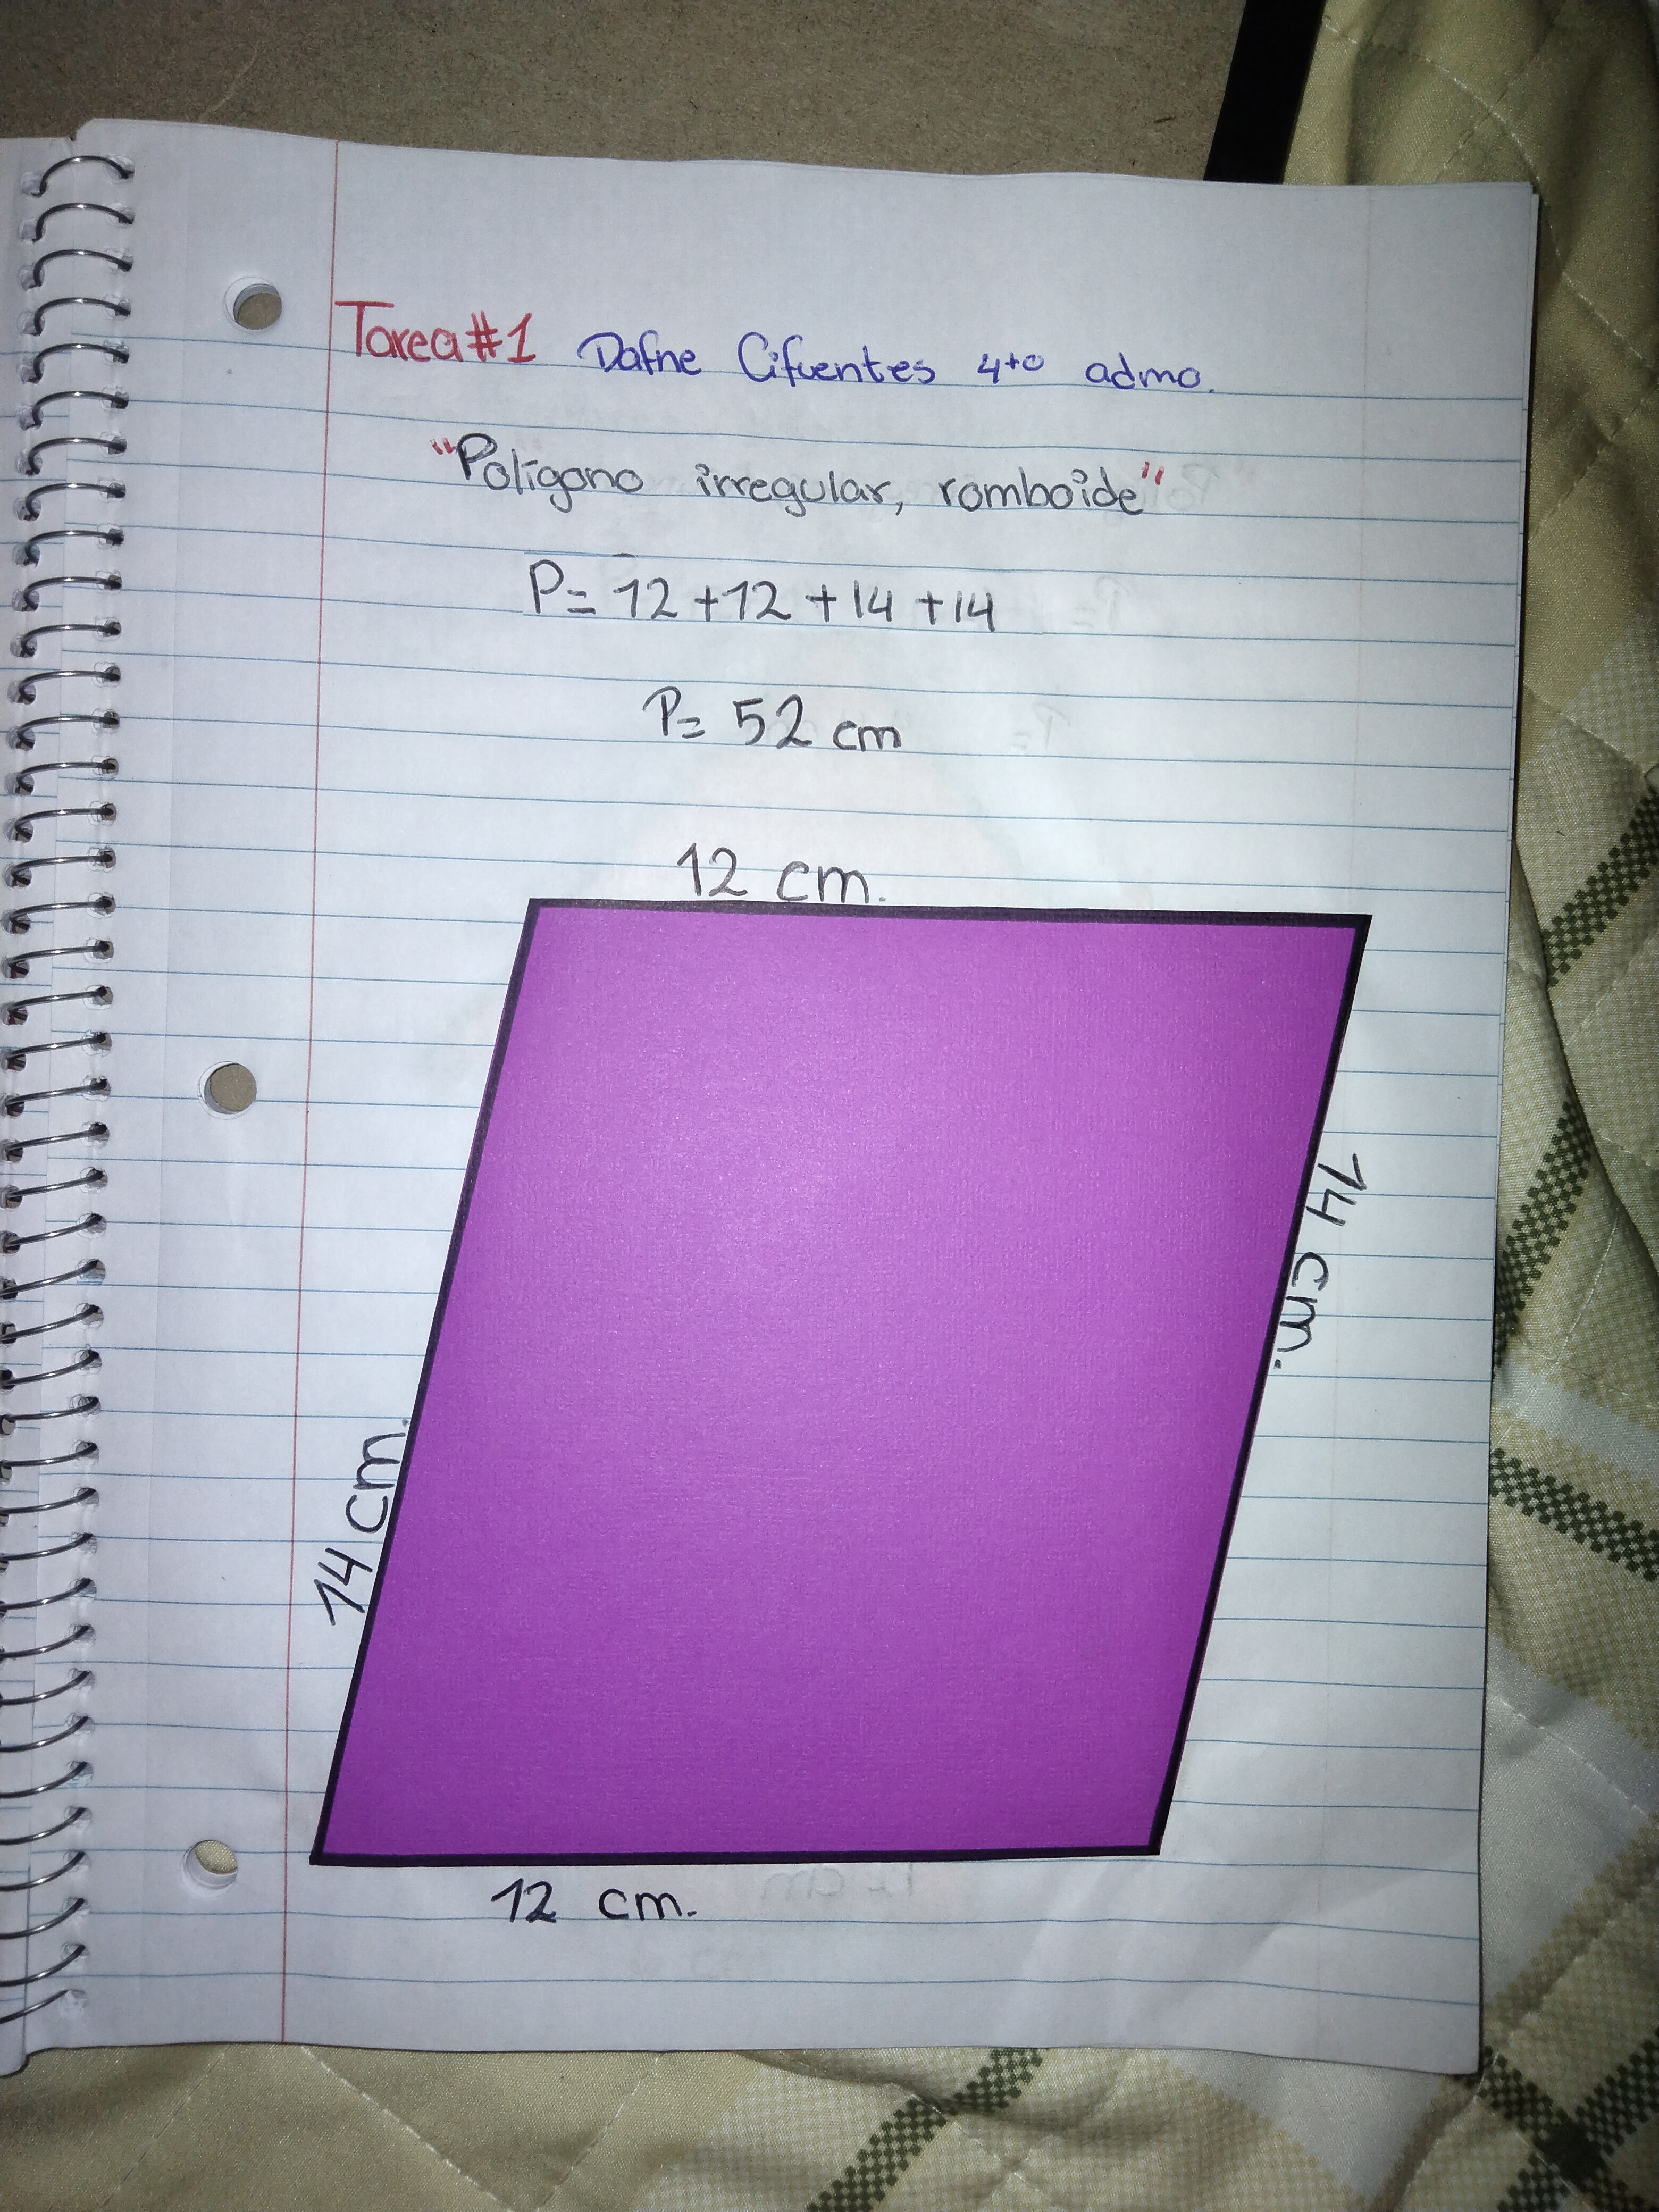 Tarea #1 Dafne Cifuentes 4to admo.
"Polígono irregular, romboide"
P= 12 +12 +14 +14
P= 52 cm
12 cm.
14 cm.
14 cm.
12 cm.